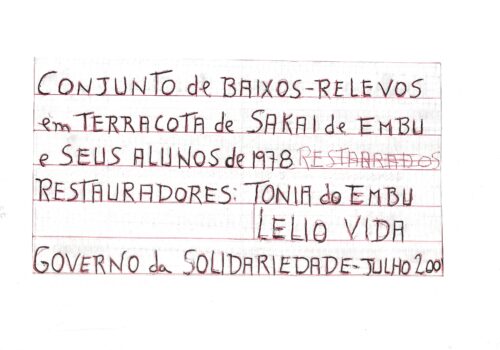 CONJUNTO de BAIXOS-RELEVOS
em TERRACOTA de SAKAI de EMBU
e SEUS ALUNOS de 1978 RESTARRADOS
RESTAURADORES: TONIA do EMBU
LELIO VIDA
GOVERNO da SOLIDARIEDADE-JULHO 2001